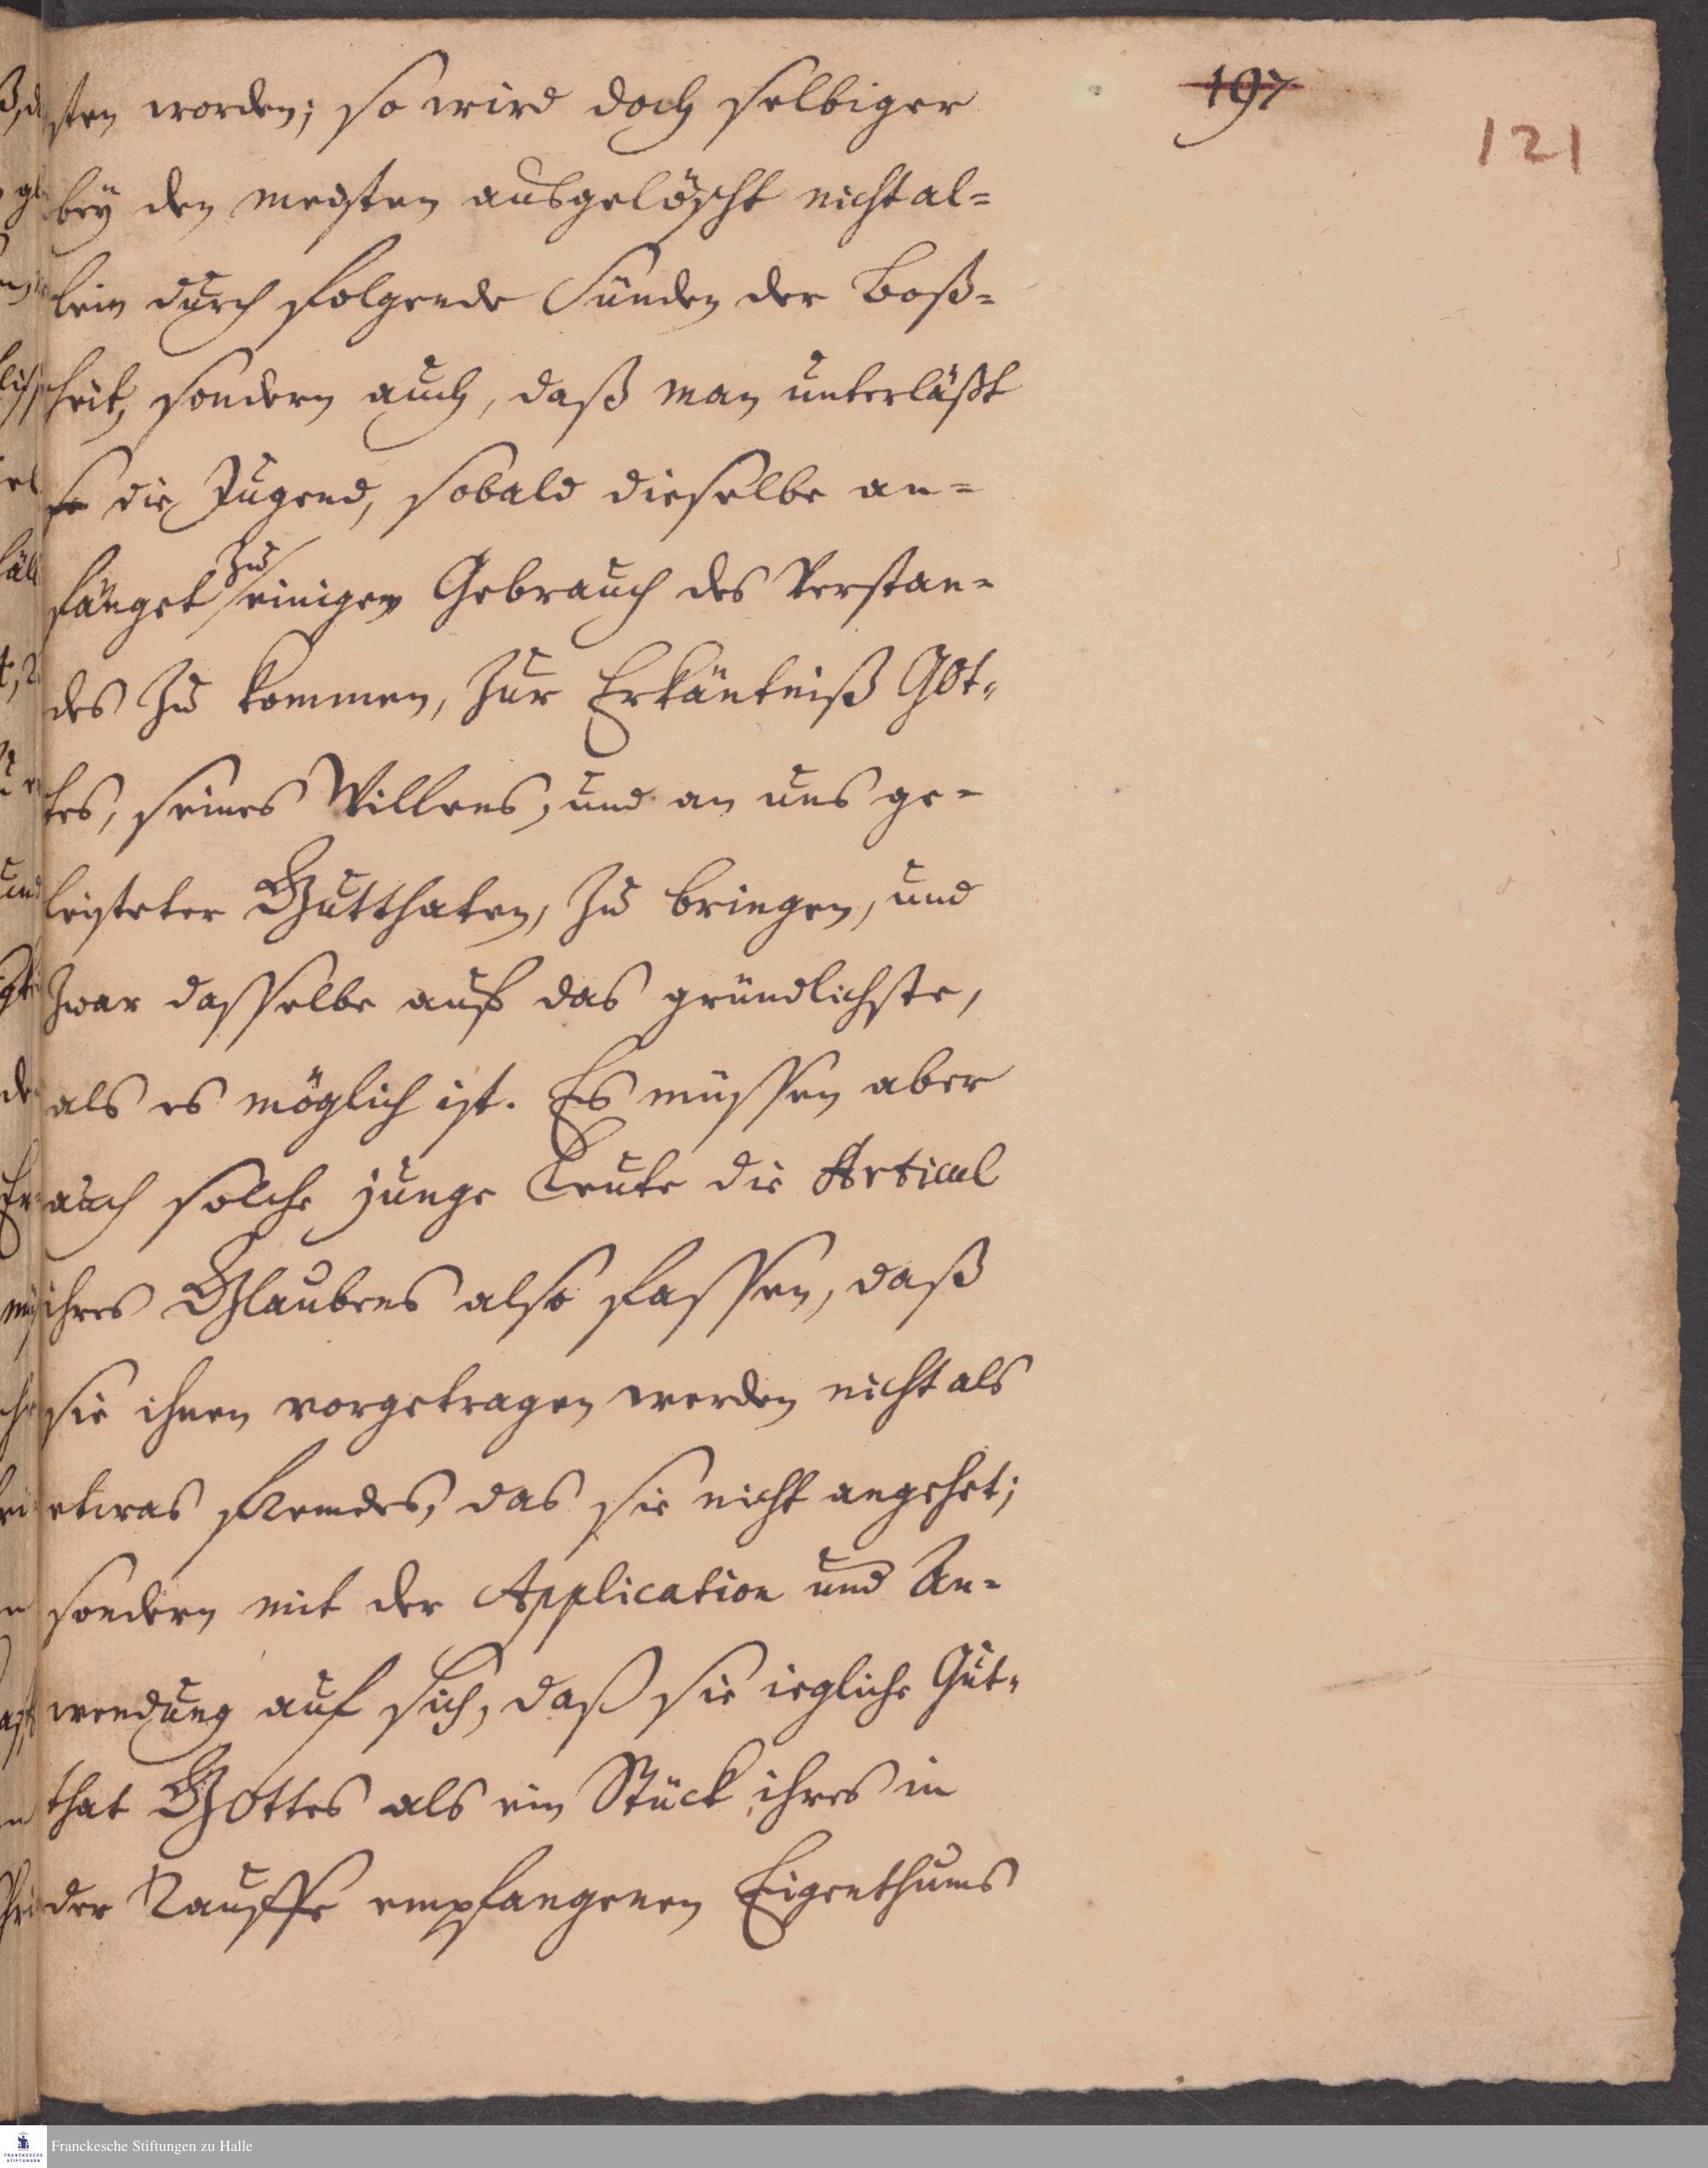 197
121
sten worden; so wird doch selbiger
bey den meisten ausgelöscht nicht al=
lein durch folgende Sünden der Boß=
heit, sondern auch, daß man unterläßt
die Jugend, sobald dieselbe an=
fänget zu einigen Gebrauch des Verstan=
des zu kommen, zur Erkäntniß GOt=
tes, seines Willens, und an uns ge=
leisteter Gutthaten, zu bringen, und
zwar dasselbe auf das gründlichste,
als es möglich ist. Es müssen aber
auch solche junge Leute die Articul
ihres Glaubens also fassen, daß
sie ihnen vorgetragen werden nicht als
etwas fremdes, das sie nicht angehet;
sondern mit der Application und An=
wendung auf sich, daß sie iegliche Gut=
that GOttes als ein Stück ihres in
der Tauffe empfangenen Eigenthums
Franckesche Stiftungen zu Halle